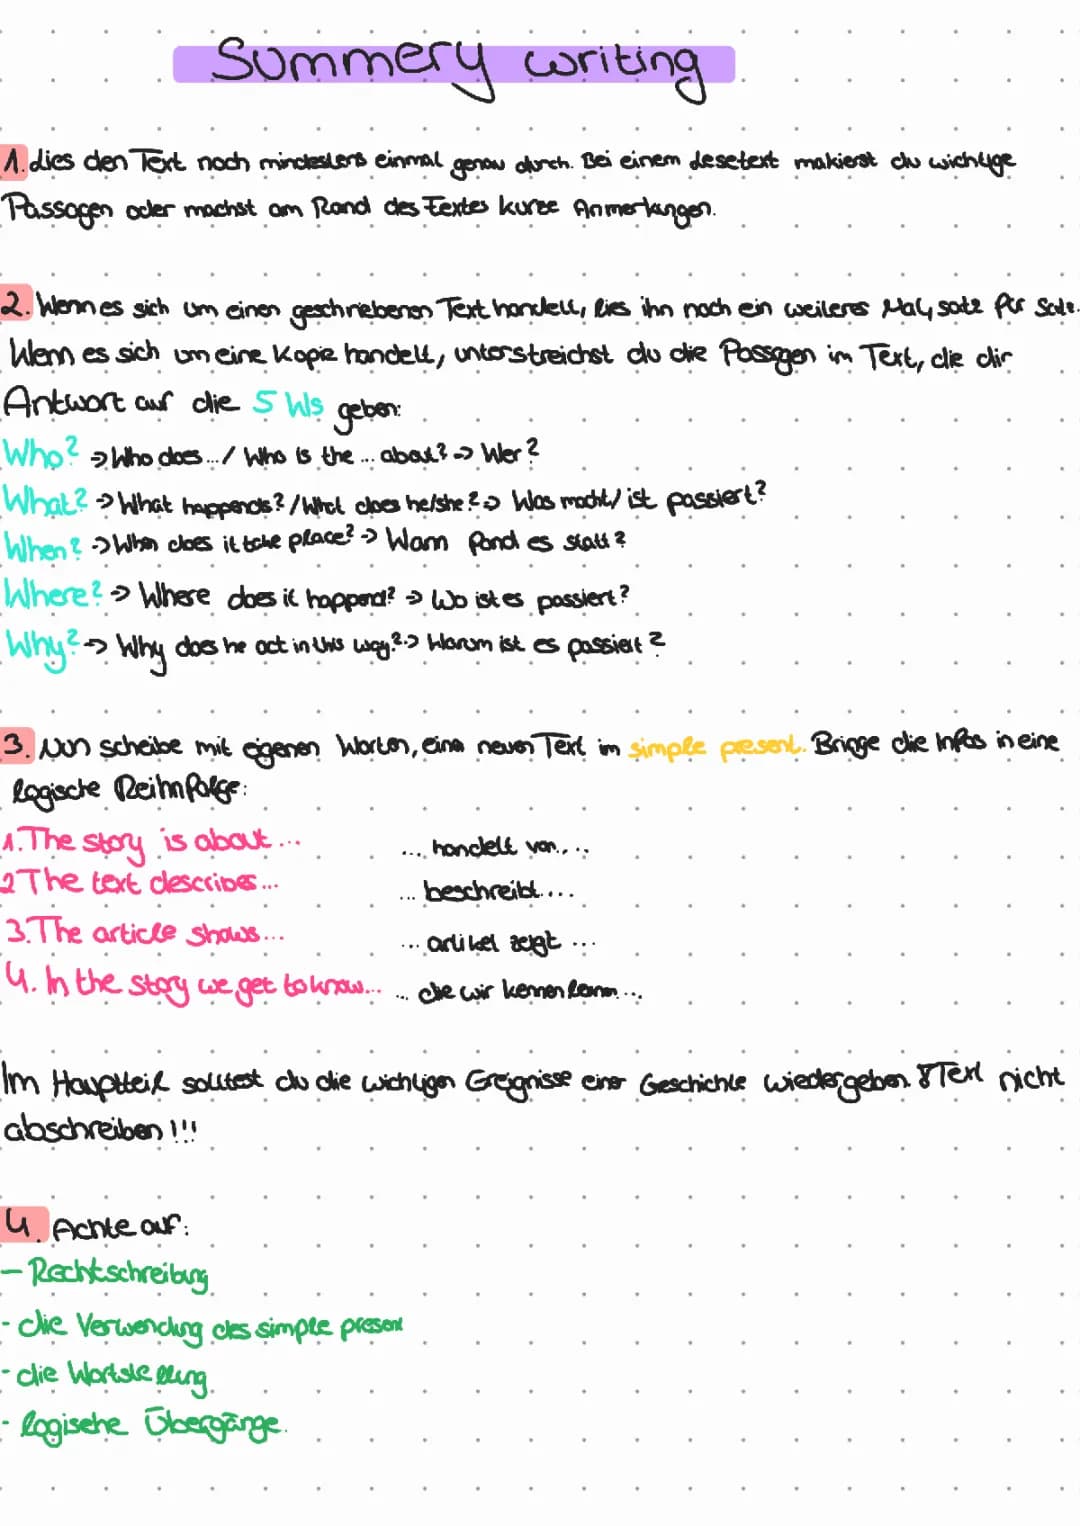 Summery writing
1. Lies den Text noch mindestens einmal genau durch. Bei einem Lesetext makierst du wichtige
Passagen oder machst am Rand des Textes kurze Anmerkungen.
2. Wenn es sich um einen geschriebenen Text handelt, lies ihn noch ein weiteres Mal, satz für Satz.
Wenn es sich um eine Kopie handelt, unterstreichst du die Passagen im Text, die dir
Antwort auf die 5 Ws geben:
Who? -> Who does .../ Who is the ... about? -> Wer?
What? -> What happends? / What does he/she? -> Was macht/ ist passiert?
When? -> When does it take place? -> Wann fand es statt?
Where? -> Where does it happend? -> Wo ist es passiert?
Why? -> Why does he act in this way? -> Warum ist es passiert?
3. Nun scheibe mit eigenen Worten, eine neuen Text im simple present. Bringe die Infos in eine
logische Reihnfolge:
1. The story is about... ... handelt von....
2 The text describes... ... beschreibt....
3. The article shows... ... artikel zeigt ...
4. In the story we get to know... ... die wir kennen lernen ...
Im Hauptteil solltest du die wichtigen Ereignisse einer Geschichte wiedergeben. Text nicht
abschreiben!!!
4. Achte auf:
- Rechtschreibung
- die Verwendung des simple present
- die Wortstellung
- logische Übergänge.